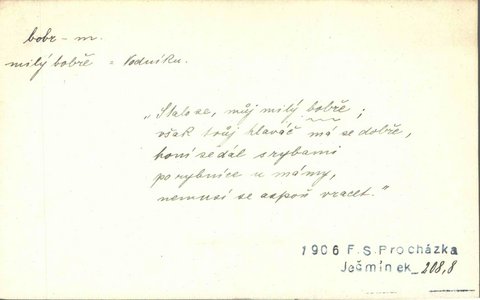 bobr - m.
milý bobře = Vodníku.
„Stalo se, můj milý bobře;
však tvůj hlaváč má se dobře,
honí se dál s rybami
po rybníce u mámy,
nemusí se aspoň vracet."
1906 F. S. Procházka
Ječmínek_208,8